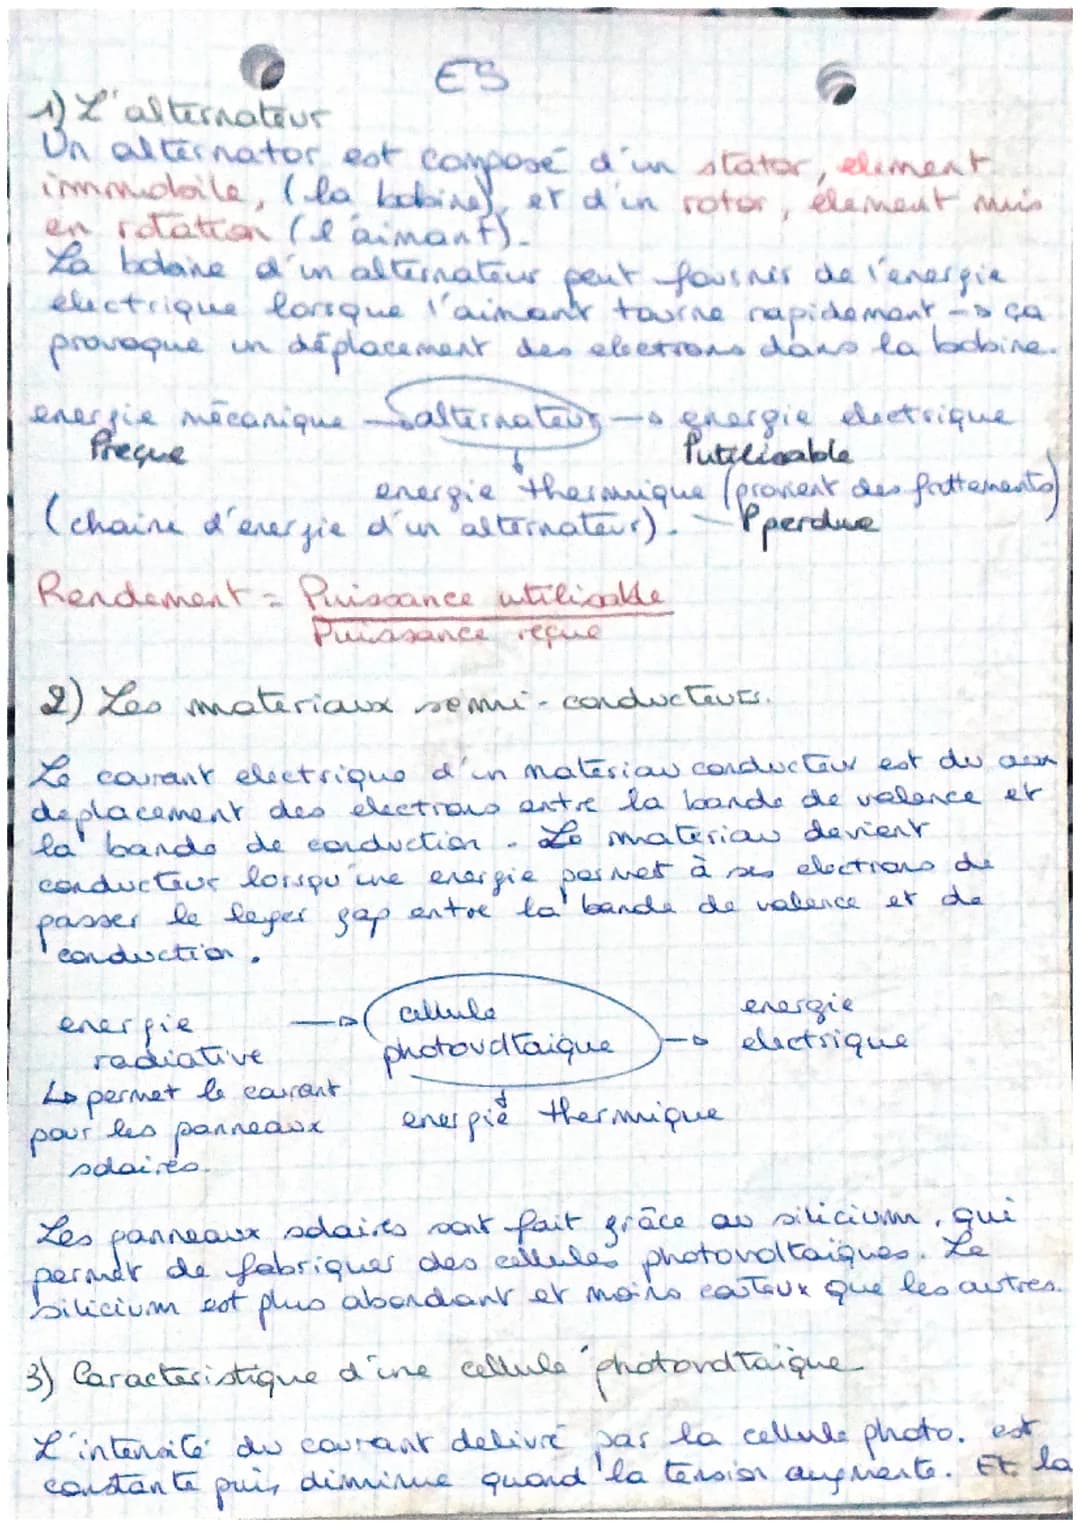 ES
1) L'alternateur
Un alternator est composé d'un stator, element
immobile, (la bobine), et d'un rotor, élement mis
en rotation (l'aimant).
La bobine d'un alternateur peut fournir de l'energie
electrique lorsque l'aimant tourne rapidement -> ça
provoque un déplacement des electrons dans la bobine.
energie mécanique -> alternateur -> energie electrique
Preçue
Putilisable
energie thermique (provient des frottements)
(chaine d'energie d'un alternateur). - Pperdue
Rendement = Puissance utilisable
Puissance reçue
2) Les materiaux semi-conducteurs.
Le courant electrique d'un materiau conducteur est du aux
deplacement des electrons entre la bande de valence et
la bande de conduction. Le materiau devient
conducteur lorsqu'une energie permet à ses electrons de
passer le leger gap entre la bande de valence et de
conduction.
energie -> cellule -> energie
radiative photovoltaique electrique
↳ permet le courant
pour les panneaux energie thermique
solaires.
Les panneaux solaires sont fait grâce au silicium, qui
permet de fabriquer des cellules photovoltaïques. Le
silicium est plus abondant et moins couteux que les autres.
3) Caracteristique d'une cellule photovoltaique
L'intensité du courant delivré par la cellule photo. est
constante puis diminue quand la tension augmente. Et la